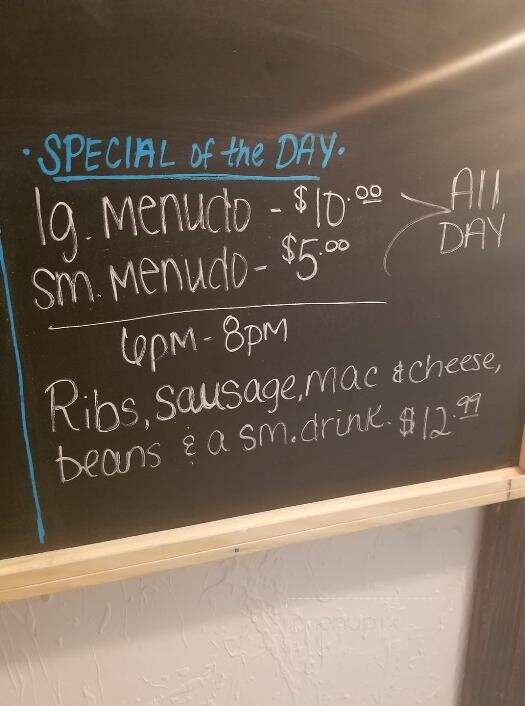 · SPECIAL of the DAY ·
lg. Menudo - $10.00
sm. Menudo - $5.00
All
DAY
6pm - 8pm
Ribs, sausage, mac & cheese,
beans & a sm. drink. $12.99